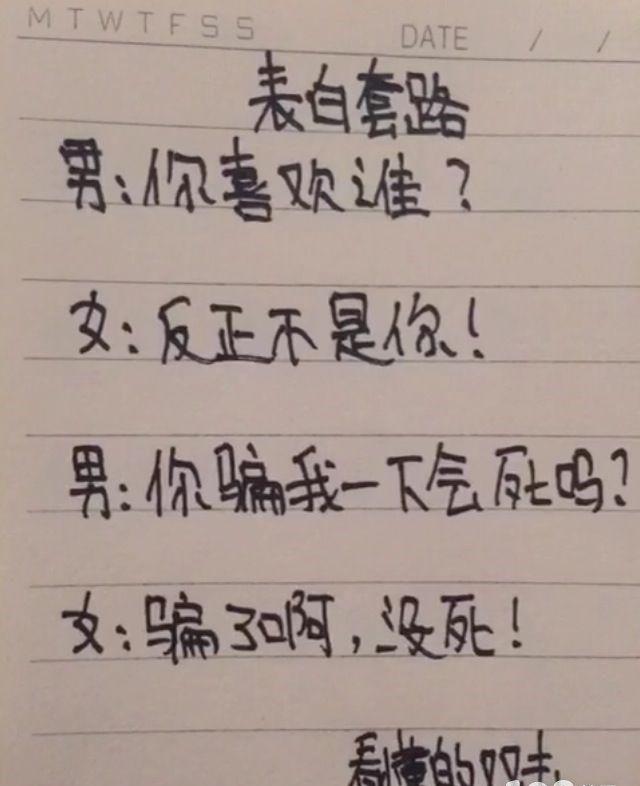 M T W T F S S DATE / /
表白套路
男:你喜欢谁?
女:反正不是你!
男:你骗我一下会死吗?
女:骗了啊,没死!
看懂的双击